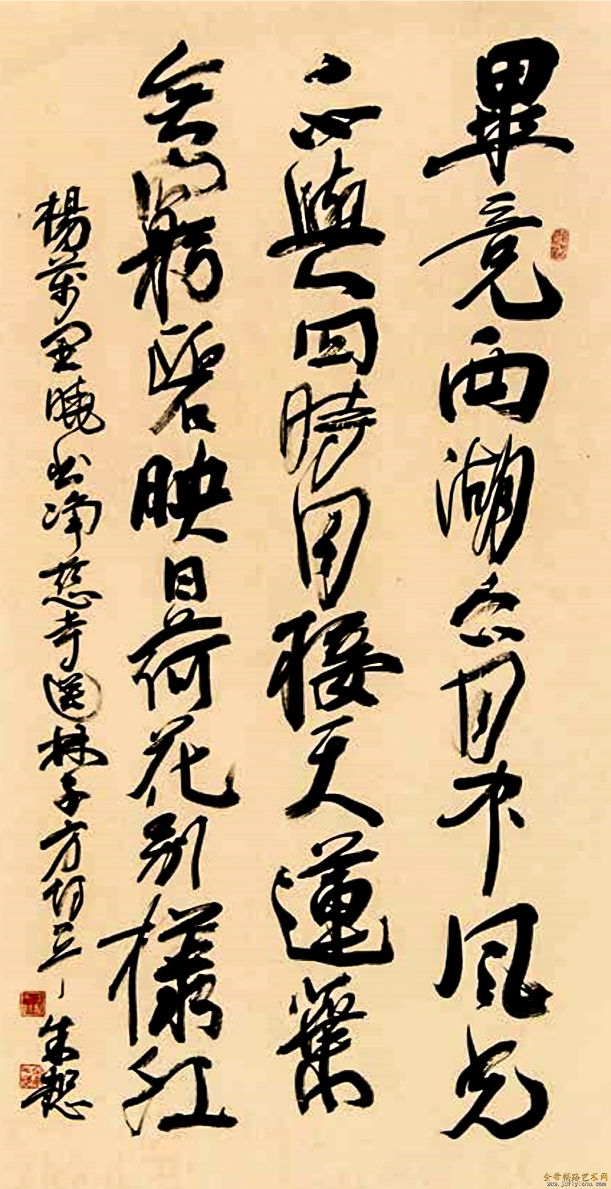 畢竟西湖六月中風光
不與四時同接天蓮葉
無窮碧映日荷花別樣紅
楊萬里曉出净慈寺送林子方